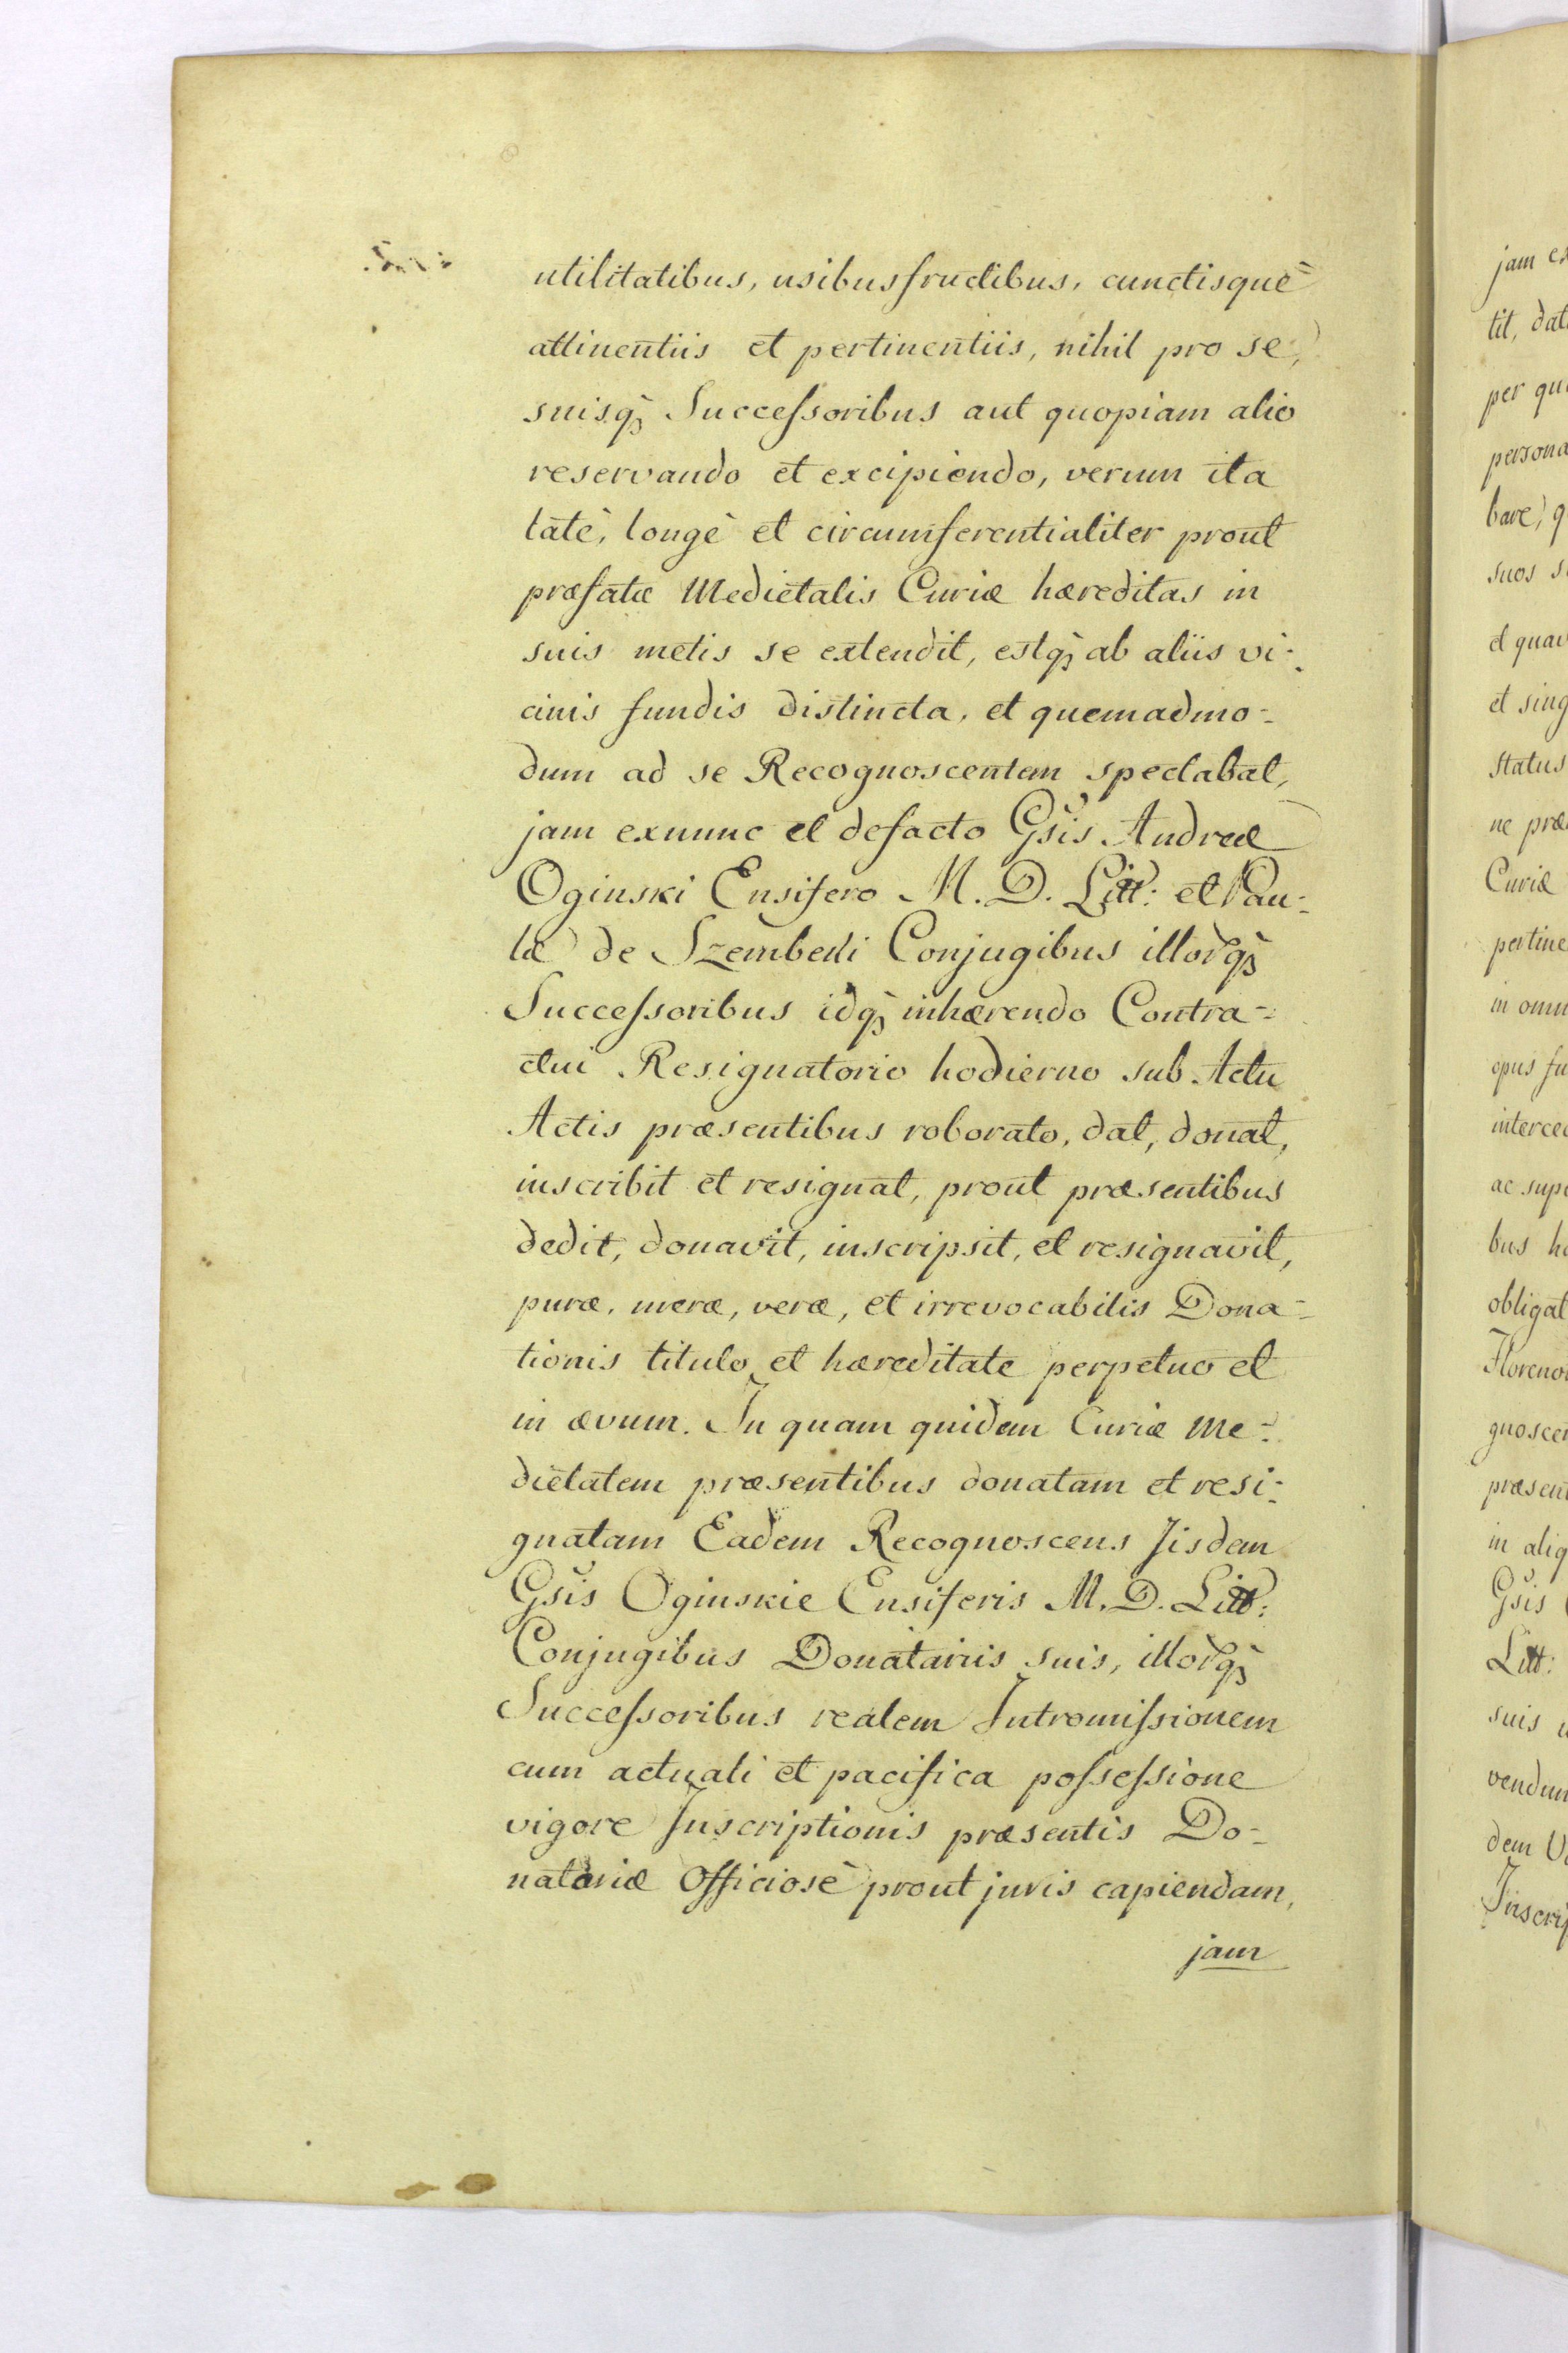 utilitatibus, usibusfructibus, cunctisquè
attinentiis et pertinentiis, nihil pro se,
suisqȝ Successoribus aut quopiam alio
reservando et excipiendo, verum ita
latè, longè et circumferentialiter prout
præfatæ Medietatis Curiæ hæreditas in
suis metis se extendit, estqȝ ab aliis vi-
cinis fundis distincta, et quemadmo-
dum ad se Recognoscentem spectabat,
jam exnunc et defacto Gsis Andreæ
Oginski Ensifero M. D. Litt: et Pau-
læ de Szembeki Conjugibus illorqȝ
Successoribus idqȝ inhærendo Contra-
ctui Resignatorio hodierno sub Actu
Actis præsentibus roborato, dat, donat,
inscribit et resignat, prout præsentibus
dedit, donavit, inscripsit, et resignavit,
puræ, meræ, veræ, et irrevocabilis Dona-
tionis titulo et hæreditate perpetuo et
in ævum. In quam quidem Curiæ Me-
dietatem præsentibus donatam et resi-
gnatam Eadem Recognoscens Iisdem
Gsis Oginskie Ensiferis M. D. Litt:
Conjugibus Donatariis suis, illorqȝ
Successoribus realem Intromissionem
cum actuali et pacifica possessione
vigore Inscriptionis præsentis Do-
natoriæ Officiosè prout juris capiendam,
jam
jam
tit,
per
persona
suos
et
et
Status
ne
Curiæ
in
opus
ac
bus
præsen
in
Gsis
Litt:
suis
dem